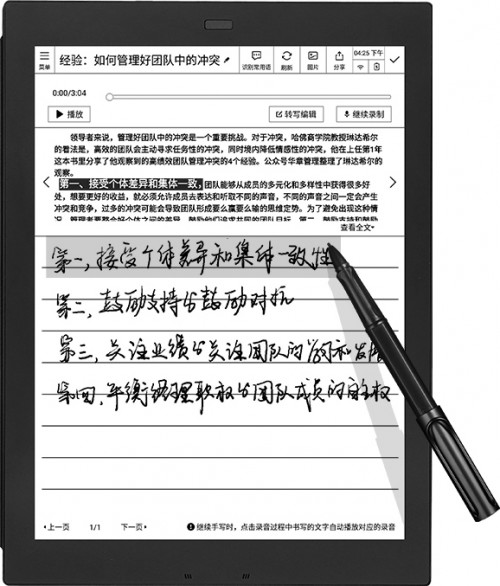 菜单
经验：如何管理好团队中的冲突
识别常用语
刷新
图片
分享
04:25 下午
0:00/3:04
播放
转写编辑
继续录制
领导者来说，管理好团队中的冲突是一个重要挑战。对于冲突，哈佛商学院教授琳达希尔
的看法是，高效的团队会主动寻求任务性的冲突，同时境内降低情感性的冲突，他在上任第1年
这本书里分享了他观察到的高绩效团队管理冲突的4个经验。公众号华章管理整理了琳达希尔的
观察。
第一、接受个体差异和集体一致，团队能够从成员的多元化和多样性中获得很多好
处，想要更好的收益，就必须允许成员去表达和听取不同的声音，不同的声音之间一定会产生
冲突和竞争，过多的冲突可能会导致团队形成要么赢要么输的思维定势。为了避免出现这种情
查看全文
第一，接受个体差异和集体一致性
第二，鼓励支持与鼓励对抗
第三，关注业绩与关注团队的学习和发展
第四，平衡经理职权与团队成员的自主权
上一页
1/1
下一页
继续手写时，点击录音过程中书写的文字自动播放对应的录音